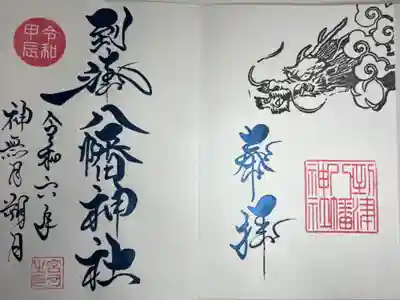 奉拝
到津八幡神社
令和甲辰
到津八幡神社
令和六年
神無月朔月